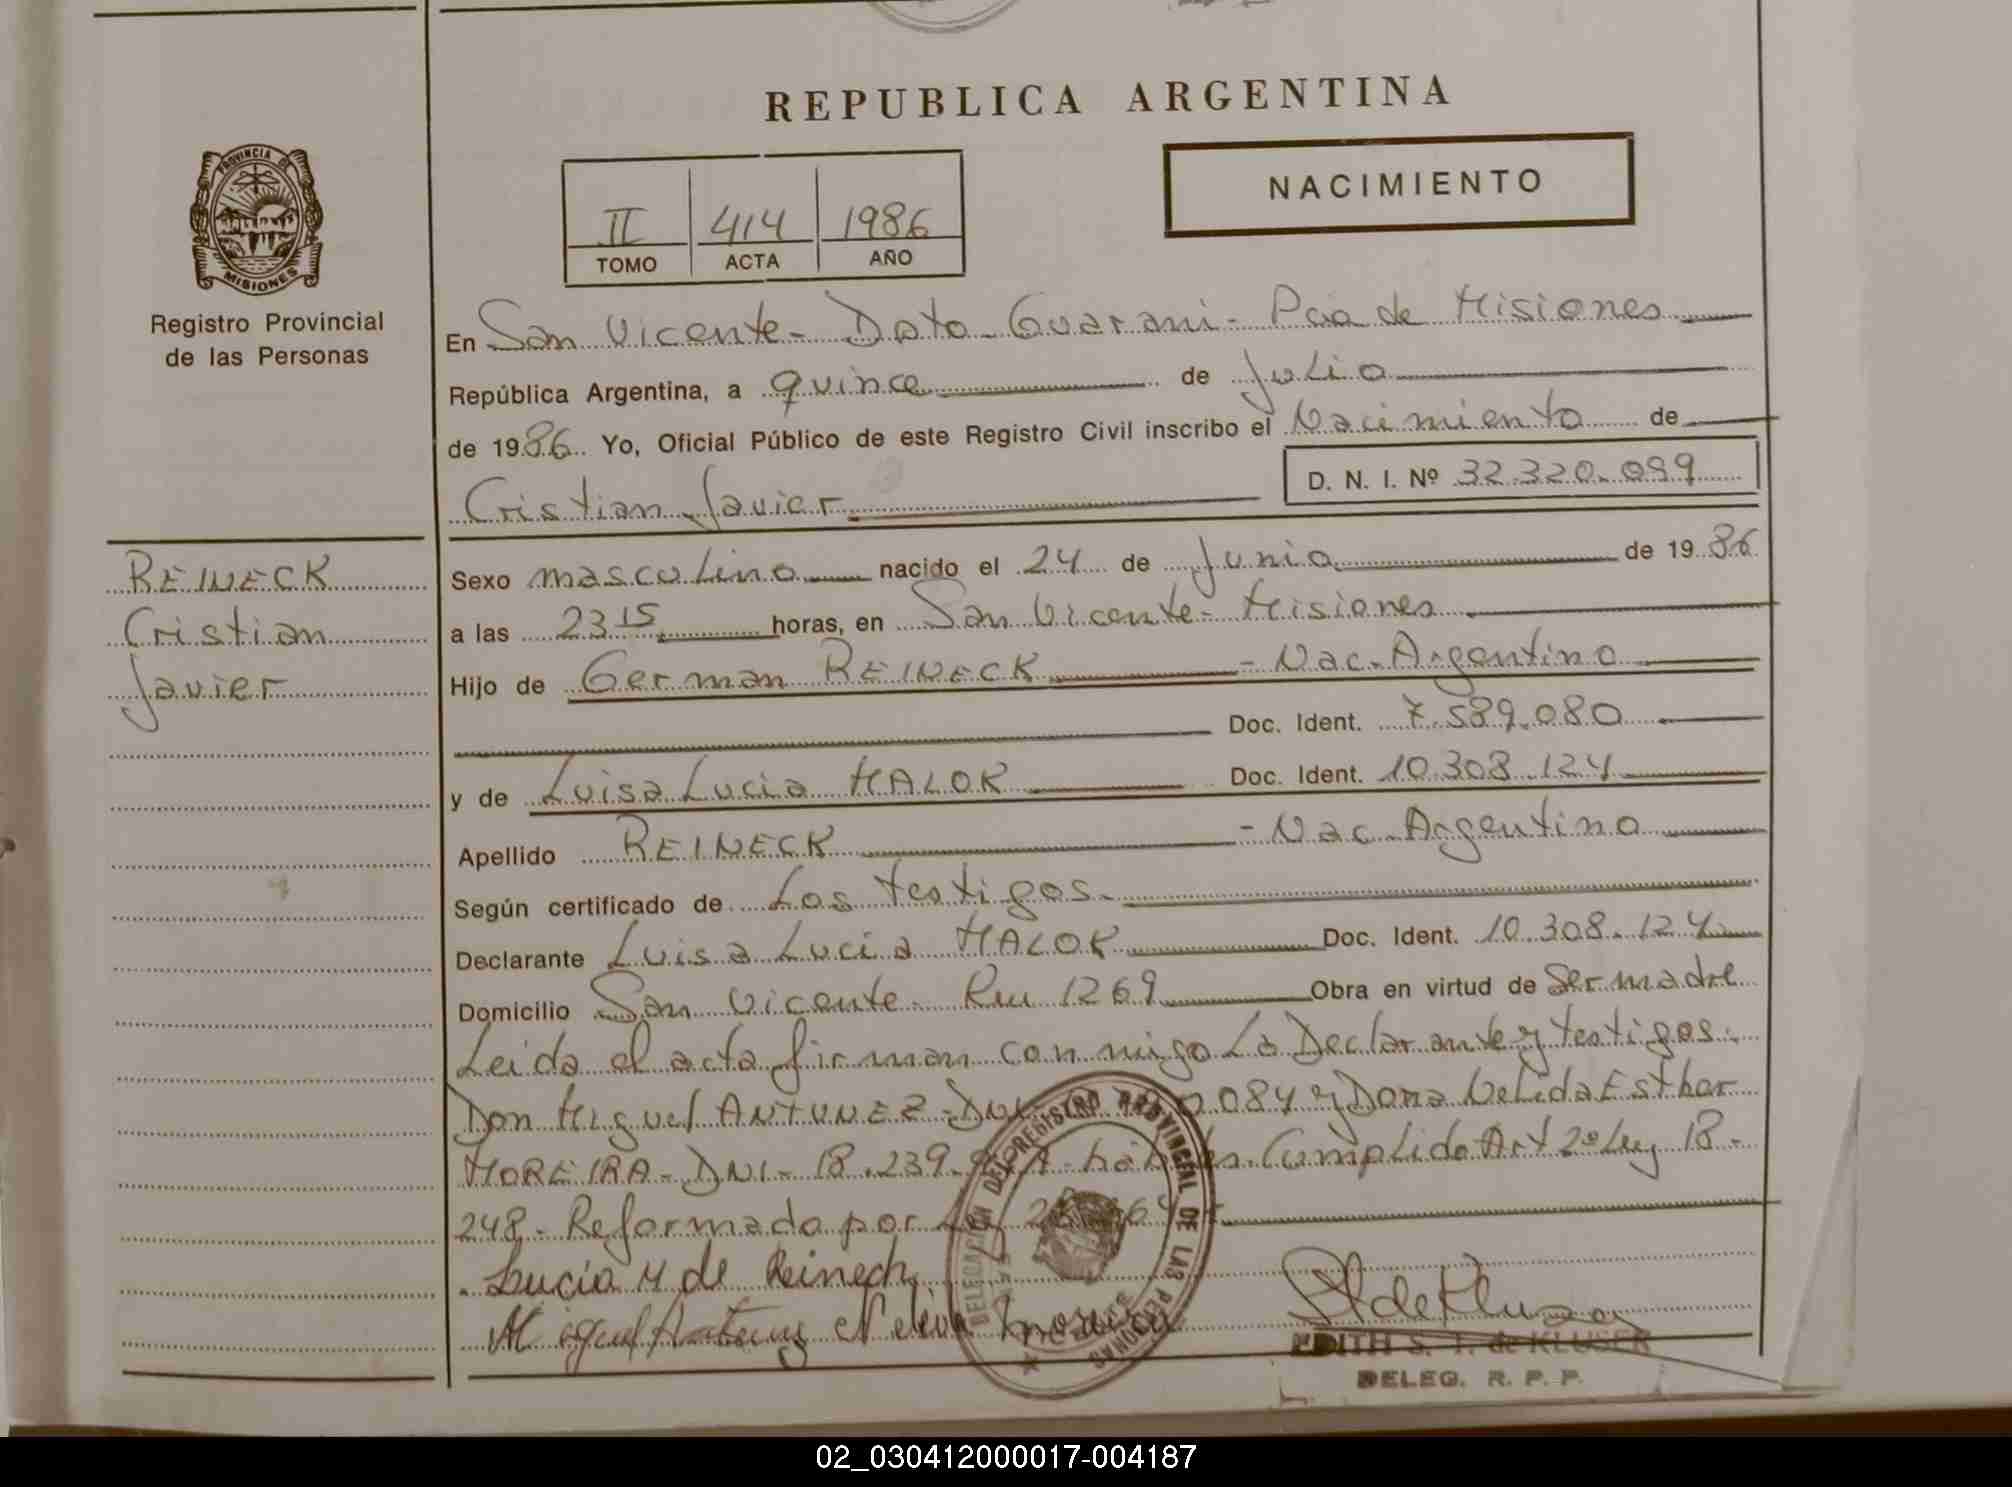 REPUBLICA ARGENTINA
PROVINCIA DE
MISIONES
Registro Provincial
de las Personas
NACIMIENTO
II 414 1986
TOMO ACTA AÑO
En San Vicente - Dpto - Guarani - Pcia de Misiones
República Argentina, a quince de Julio
de 1986. Yo, Oficial Público de este Registro Civil inscribo el Nacimiento de
Cristian Javier D. N. I. Nº 32.320.099
REINECK
Cristian
Javier
Sexo masculino nacido el 24 de Junio de 1986
a las 23 15 horas, en San Vicente - Misiones
Hijo de German REINECK - Nac. Argentino
Doc. Ident. 7.589.080
y de Luisa Lucia MALOK Doc. Ident. 10.308.124
Apellido REINECK - Nac. Argentino
Según certificado de Los testigos.
Declarante Luisa Lucia MALOK Doc. Ident. 10.308.124
Domicilio San Vicente - 1269 Obra en virtud de Ser madre
Leida el acta firman conmigo La Declarante y testigos:
Don Miguel ANTUNEZ - DNI 084 y Doña Nelida Esther
MOREIRA - DNI - 18.239. Cumplido Art 2º Ley 18.
248 - Reformado por
Lucia M de Reineck
Miguel Antunez Nelida Moreira
DELEGACIÓN DEL REGISTRO PROVINCIAL DE LAS PERSONAS
EDITH S. T. de KLUSER
DELEG. R. P. P.
02_030412000017-004187